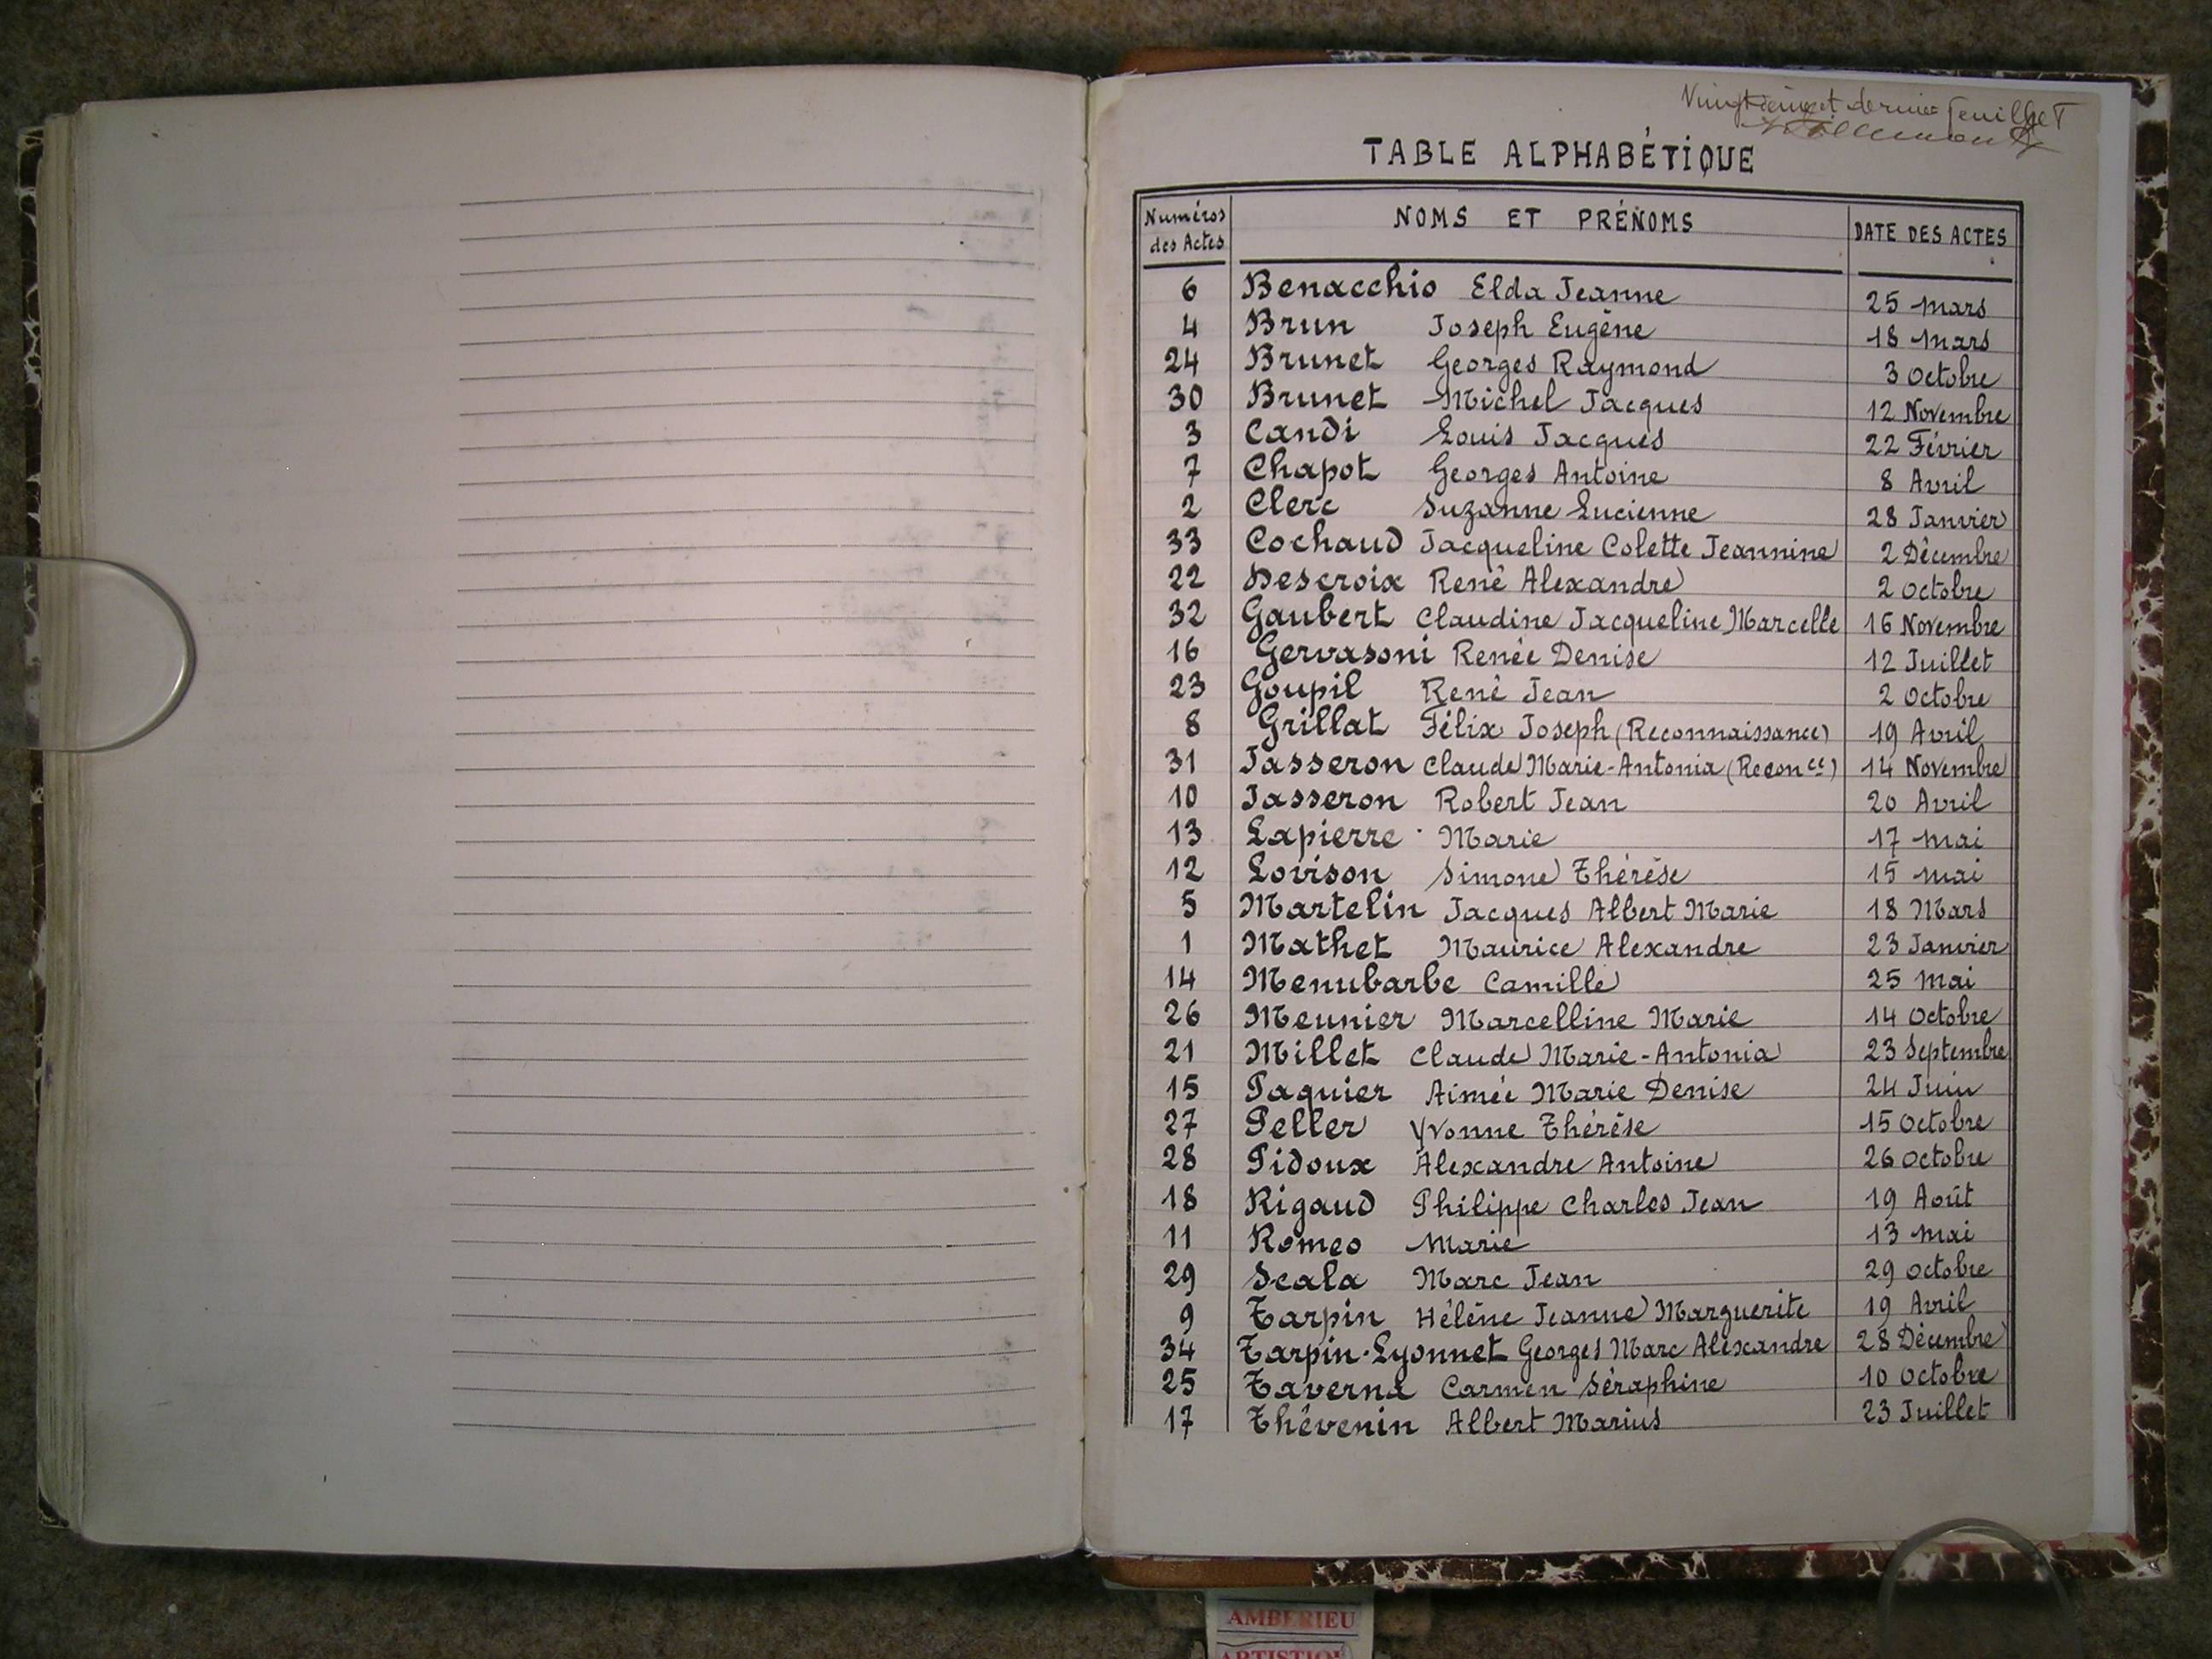 Vingtième et dernier feuillet
TABLE ALPHABÉTIQUE
Numéros des Actes NOMS ET PRÉNOMS DATE DES ACTES
6 Benacchio Elda Jeanne 25 mars
4 Brun Joseph Eugène 18 mars
24 Brunet Georges Raymond 3 Octobre
30 Brunet Michel Jacques 12 Novembre
3 Candi Louis Jacques 22 Février
7 Chapot Georges Antoine 8 Avril
2 Clerc Suzanne Lucienne 28 Janvier
33 Cochaud Jacqueline Colette Jeannine 2 Décembre
22 Descroix René Alexandre 2 Octobre
32 Gaubert Claudine Jacqueline Marcelle 16 Novembre
16 Gervasoni Renée Denise 12 Juillet
23 Goupil René Jean 2 Octobre
8 Grillat Félix Joseph (Reconnaissance) 19 Avril
31 Jasseron Claude Marie-Antonia (Reconce) 14 Novembre
10 Jasseron Robert Jean 20 Avril
13 Lapierre Marie 17 mai
12 Lovison Simone Thérèse 15 mai
5 Martelin Jacques Albert Marie 18 Mars
1 Mathet Maurice Alexandre 23 Janvier
14 Menubarbe Camille 25 Mai
26 Meunier Marcelline Marie 14 Octobre
21 Millet Claude Marie-Antonia 23 Septembre
15 Paquier Aimée Marie Denise 24 Juin
27 Peller Yvonne Thérèse 15 Octobre
28 Pidoux Alexandre Antoine 26 Octobre
18 Rigaud Philippe Charles Jean 19 Août
11 Romeo Marie 13 mai
29 Scala Marc Jean 29 Octobre
9 Tarpin Hélène Jeanne Marguerite 19 Avril
34 Tarpin-Lyonnet Georges Marc Alexandre 28 Décembre
25 Taverna Carmen Séraphine 10 Octobre
17 Thévenin Albert Marius 23 Juillet
AMBERIEU